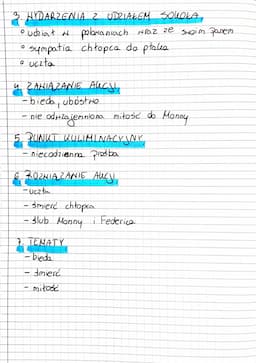 3. WYDARZENIA Z UDZIAŁEM SOKOŁA
° udział w polowaniach wraz ze swoim panem
° sympatia chłopca do ptaka
° uczta
4. ZAWIĄZANIE AKCJI
- bieda, ubóstwo
- nie odwzajemniona miłość do Monny
5. PUNKT KULMINACYJNY
- niecodzienna prośba
6. ROZWIĄZANIE AKCJI
- uczta
- śmierć chłopca
- ślub Monny i Federica
7. TEMATY
- bieda
- śmierć
- miłość